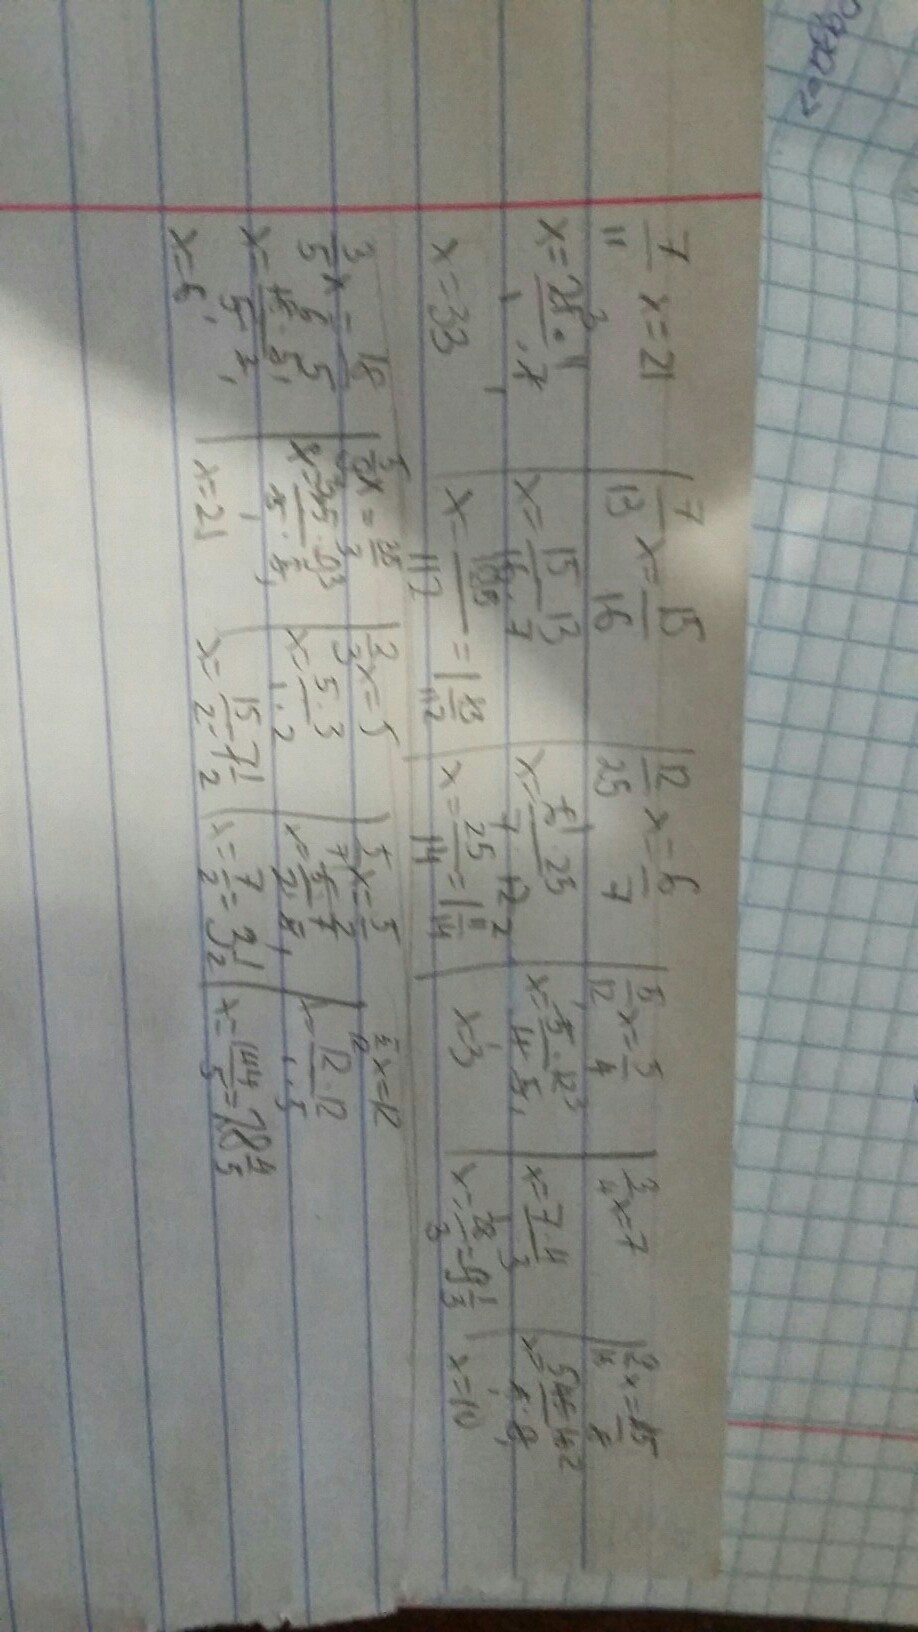 7/11 x = 21
x = 21 · 11 / 1 · 7
x = 33
7/13 x = 15/16
x = 15 · 13 / 16 · 7
x = 112 = 1 83/112
12/25 x = 6/7
x = 6 · 25 / 7 · 12
x = 25/14 = 1 11/14
5/12 x = 5/4
x = 5 · 12 / 4 · 5
x = 3
3/4 x = 7
x = 7 · 4 / 1 · 3
x = 28/3 = 9 1/3
x = 10
3/5 x = 18/5
x = 6
x = 21
2/3 x = 5
x = 5 · 3 / 1 · 2
x = 15/2 = 7 1/2
5/7 x = 5/2
x = 5 · 7 / 2 · 5
x = 7/2 = 3 1/2
x = 12
x = 12 · 12 / 1 · 5
x = 144/5 = 28 4/5